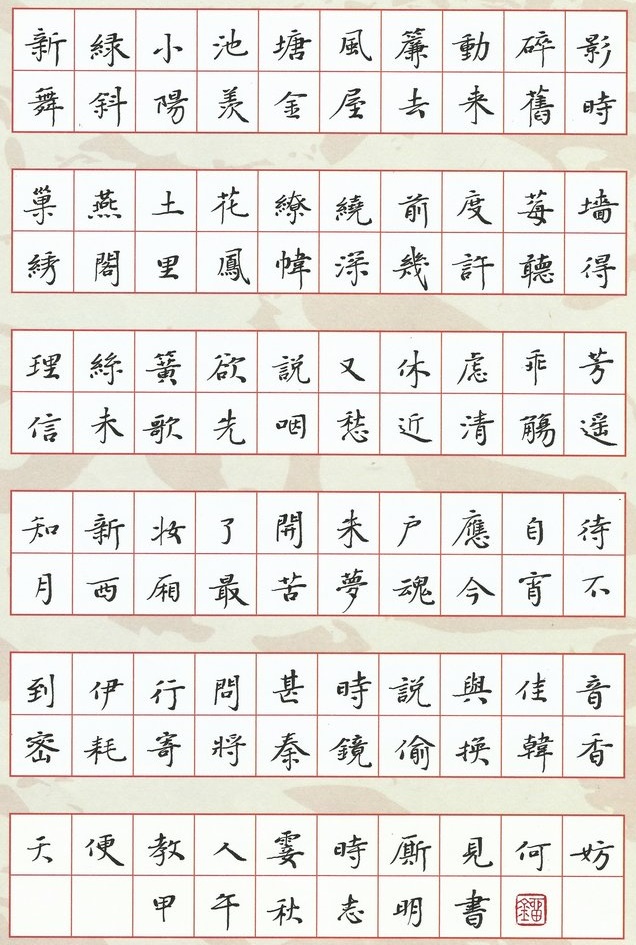 新綠小池塘風簾動碎影
舞斜陽羨金屋去来舊時
巢燕土花繚繞前度莓墙
綉閣里鳳幃深幾許聽得
理絲簧欲說又休慮乖芳
信未歌先咽愁近清觴遥
知新妆了開朱户應自待
月西厢最苦夢魂今宵不
到伊行問甚時說與佳音
密耗寄將秦鏡偷換韓香
天便教人霎時厮見何妨
甲午秋志明書